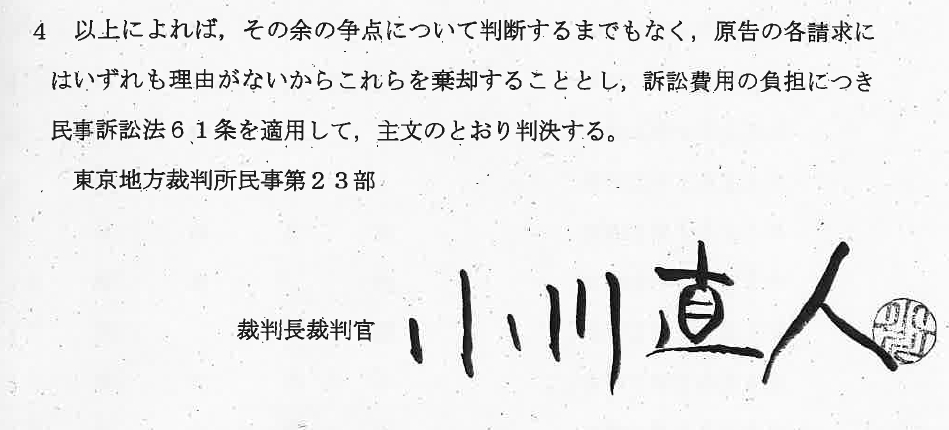 4 以上によれば，その余の争点について判断するまでもなく，原告の各請求に
はいずれも理由がないからこれらを棄却することとし，訴訟費用の負担につき
民事訴訟法６１条を適用して，主文のとおり判決する。
東京地方裁判所民事第２３部
裁判長裁判官 小川直人